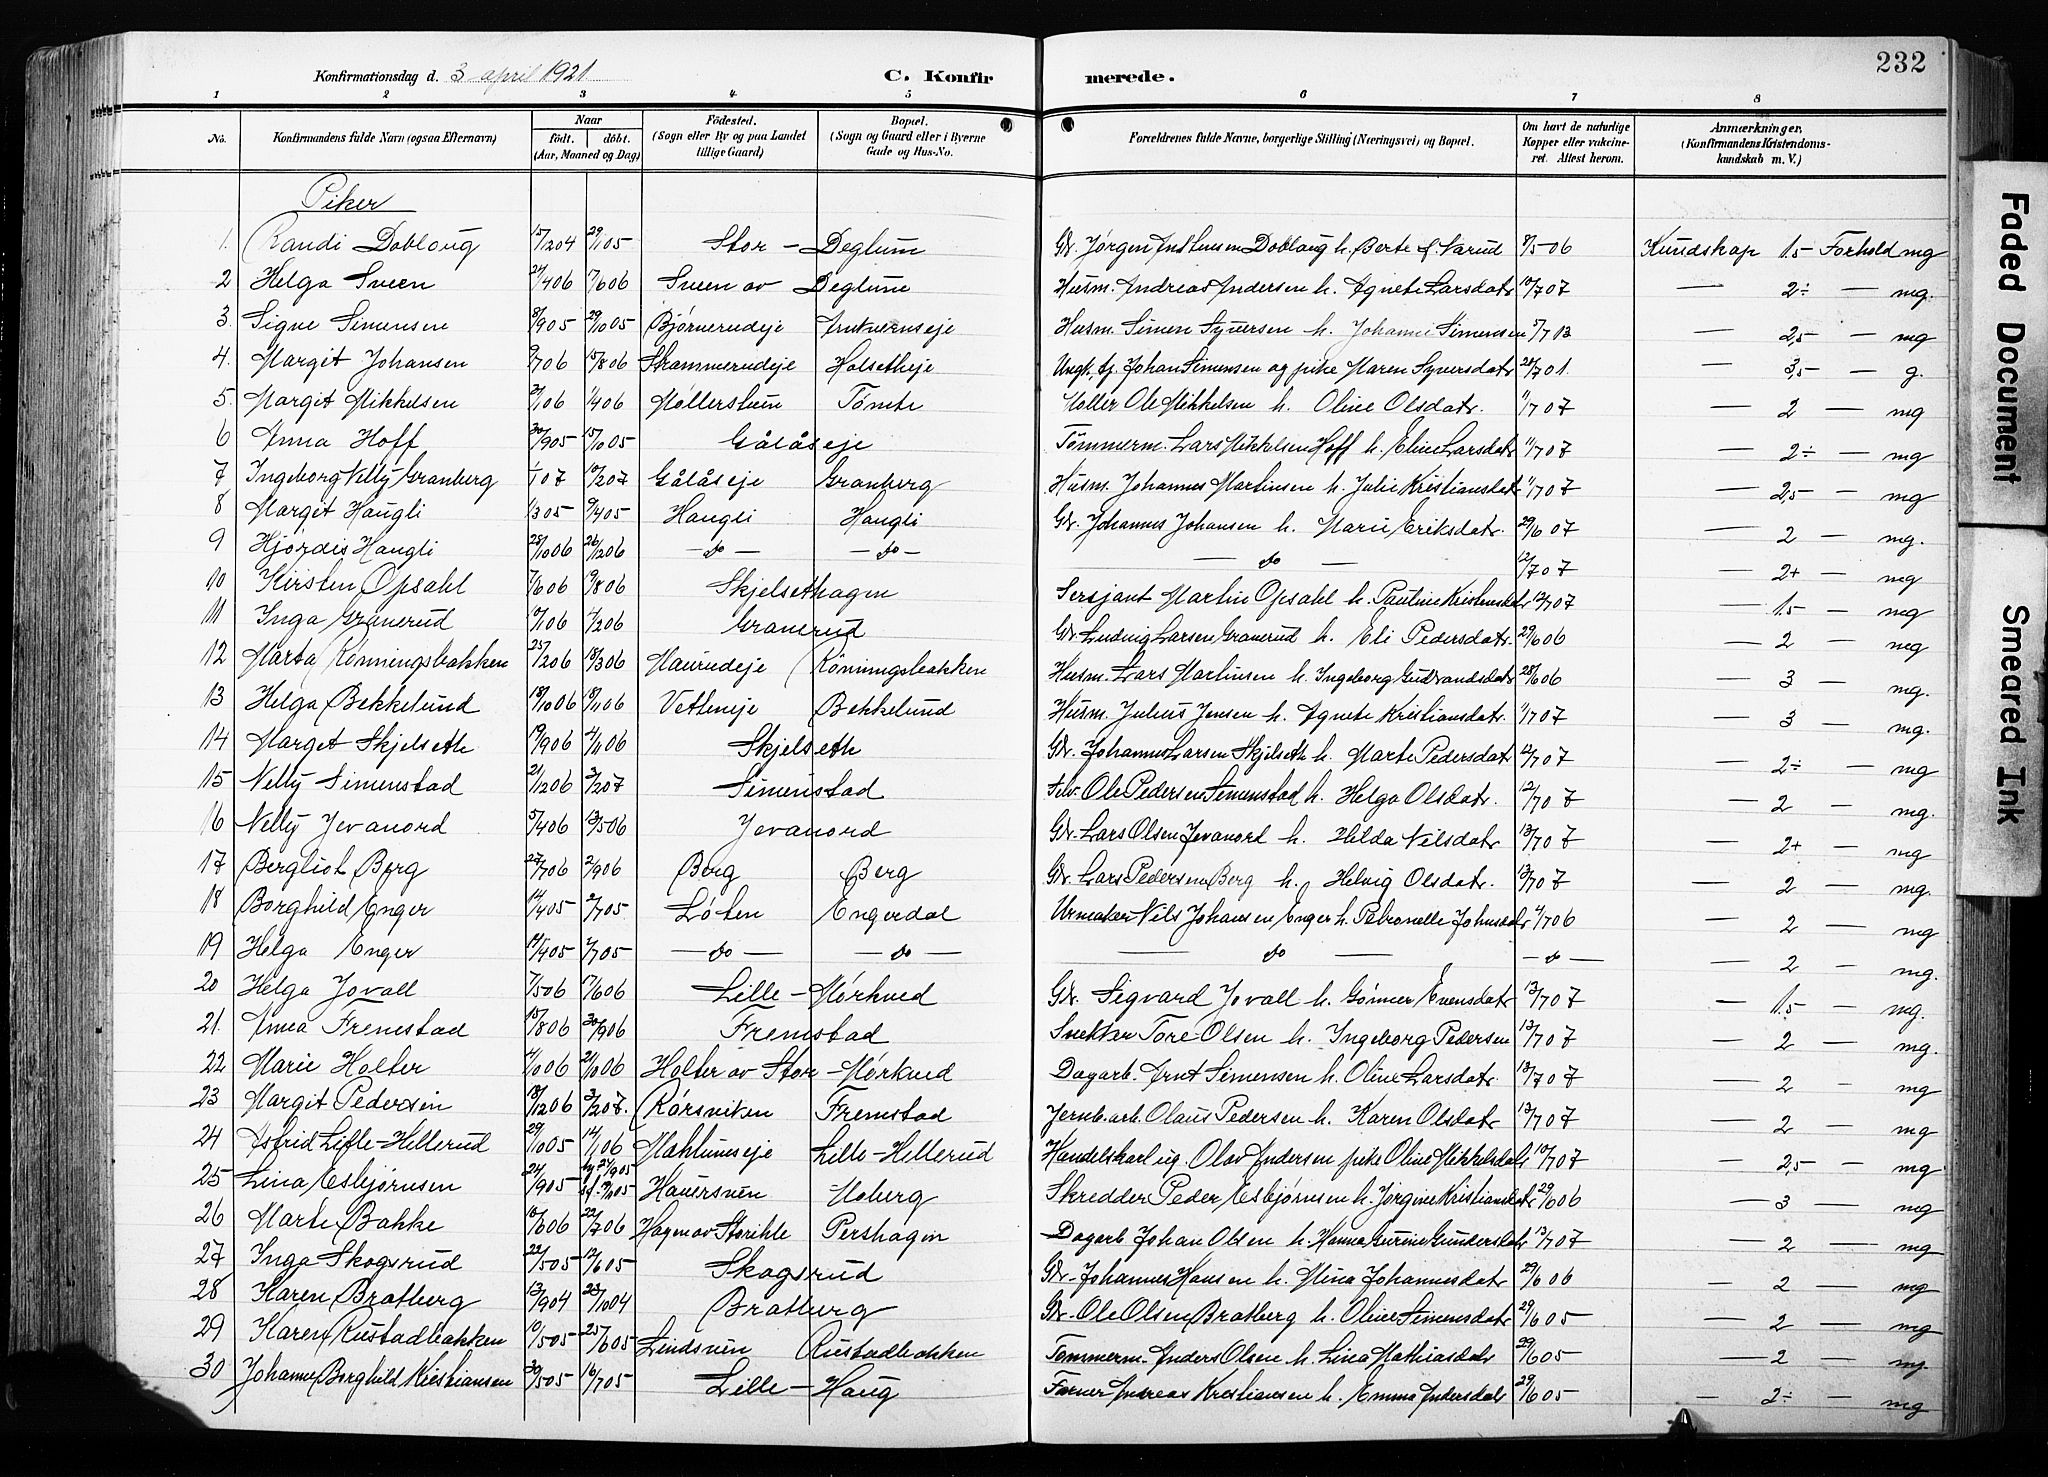 Konfirmationsdag d. 3 april 1921 C. Konfirmerede. 232
1 2 3 4 5 6 7 8
No. Konfirmandens fulde Navn (ogsaa Efternavn) Naar født. døbt. (Aar, Maaned og Dag) Fødested. (Sogn eller By og paa Landet tillige Gaard) Bopæl. (Sogn og Gaard eller i Byerne Gade og Hus-No. Forældrenes fulde Navne, borgerlige Stilling (Næringsvei) og Bopæl. Om havt de naturlige Kopper eller vakcineret. Attest herom. Anmærkninger. (Konfirmandens Kristendomskundskab m. V.)
Piker
1. Randi Dobloug 15/12 04 29/1 05 Stor-Deglum Gbr. Jørgen Dobloug h. Berte 7/5 06 Kundskap 1.5 Forhold mg
2 Helga Sveen 24/4 06 7/6 06 Sveen av Deglum Husm. Andreas Andersen h. Agnete Larsdatr 10/7 07 — 2÷ — mg.
3. Signe Simensen 8/9 05 29/10 05 Bjørnerudeje Husm. Simen Syversen h. Johanne Simensen 5/7 13 — 2,5 — mg
4. Margit Johansen 9/7 06 15/8 06 Strammerudeje Holsetheje Ungk. tj. Johan Simensen og pike Maren Syversdatr — 3,5 — g.
5. Margit Mikkelsen 2/1 06 1/4 06 Møllerstuen Tømte Møller Ole Mikkelsen h. Oline Olsdatr. 11/7 07 — 2 — mg
6 Anna Hoff 30/9 05 15/10 05 Gålåseje Tømmerm. Lars Mikkelsen Hoff h. Eline Larsdatr 11/7 07 — 2÷ — mg
7 Ingeborg Nelly Granberg 1/1 07 10/2 07 Gålåseje Granberg Husm. Johannes Martinsen h. Julie Kristiansdatr 11/7 07 — 2,5 — mg
8 Margit Haugli 1/3 05 9/4 05 Haugli Haugli Gbr. Johannes Johansen h. Marie Eriksdatr. 29/6 07 — 2 — mg.
9 Hjørdis Haugli 28/10 06 26/12 06 — do — — do — — do — 12/7 07 — 2+ — mg
10 Kirsten Opsahl 7/6 06 19/8 06 Skjelsethagen Sersjant Martin Opsahl h. Pauline 12/7 07 — 1.5 — mg
11 Inga Granerud 10/1 06 4/2 06 Granerud Gbr. Ludvig Larsen Granerud h. Eli Pedersdatr. 29/6 06 — 2 — mg
12 Marta Rønningsbakken 25/2 06 18/3 06 Maurudeje Rønningsbakken Husm. Lars Martinsen h. Ingeborg Gudbrandsdatr 28/6 06 — 3 — mg.
13 Helga Bekkelund 18/10 06 18/11 06 Vetleneje Bekkelund Husm. Julius Jensen h. Agnete Kristiansdatr. 11/7 07 — 3 — mg.
14 Marget Skjelseth 19/9 06 4/11 06 Skjelseth Gbr. Johannes Larsen Skjelseth h. Marte Pedersdatr 12/7 07 — 2÷ — mg
15 Nelly Simenstad 21/12 06 3/2 07 Simenstad Selv. Ole Pedersen Simenstad h. Helga Olsdatr. 12/7 07 — 2 — mg.
16 Nelly Jevanord 5/4 06 13/5 06 Jevanord Gbr. Lars Olsen Jevanord h. Hilda Nilsdatr 13/7 07 — 2+ — mg
17 Bergliot Berg 27/7 06 2/9 06 Berg Berg Gbr. Lars Pedersen Berg h. Helvig Olsdatr. 13/7 07 — 2 — mg.
18 Borghild Enger 14/4 05 2/7 05 Løten Engerdal Urmaker Nils Johansen Enger h. Petronelle Johnsdatr 4/7 06 — 2 — mg
19 Helga Enger 14/4 05 2/7 05 — do — — do — — do — — do — — 2 — mg.
20 Helga Jovall 7/5 06 17/6 06 Lille-Mørkved Gbr. Sigvard Jovall h. Gunner Evensdatr 13/7 07 — 1.5 — mg.
21. Anna Fremstad 15/8 06 30/9 06 Fremstad Snekker Tore Olsen h. Ingeborg Pedersen 13/7 07 — 2 — mg.
22 Marie Holter 4/10 06 21/10 06 Holter av Stor-Mørkved Dagarb. Arnt Simensen h. Oline Larsdatr. 13/7 07 — 2 — mg
23 Margit Pedersen 18/12 06 3/2 07. Rørsviken Fremstad Jernb.arb. Olaus Pedersen h. Karen Olsdatr 13/7 07 — 2 — mg
24 Astrid Lille-Hellerud 29/10 05 14/1 06 Mahlumseje Lille-Hellerud Handelskarl ug. Olav Andersen pike Oline Mikkelsdatr 10/7 07 — 2,5 — mg
25 Lina Esbjørnsen 24/9 05 Hauersven Moberg Skredder Peder Esbjørnsen h. Jørgine Kristiansdatr 29/6 06 — 3 — mg
26 Marte Bakke 10/6 06 22/7 06 Hagen av Storihle Pershagen Dagarb Johan Olsen h. Hanna Gurine Gundersdatr 13/7 07 — 2 — mg
27 Inga Skogsrud 22/5 05 12/6 05 Skogsrud Gbr. Johannes Hansen h. Mina Johannesdatr 29/6 06 — 2 — mg
28 Karen Bratberg 13/9 04 23/10 04 Bratberg Gbr. Ole Olsen Bratberg h. Oline Simensdatr 29/6 05 — 2 — mg
29 Karen Rustadbakken 10/5 05 25/6 05 Lindsven Rustadbakken Tømmerm. Anders Olsen h. Lina Mathiasdatr 29/6 05 — 2 — mg.
30 Johanne Borghild Kristiansen 30/5 05 16/7 05 Lille-Haug Andreas Kristiansen h. Emma Andersdatr 29/6 05 — 2÷ — mg
Faded Document
Smeared Ink